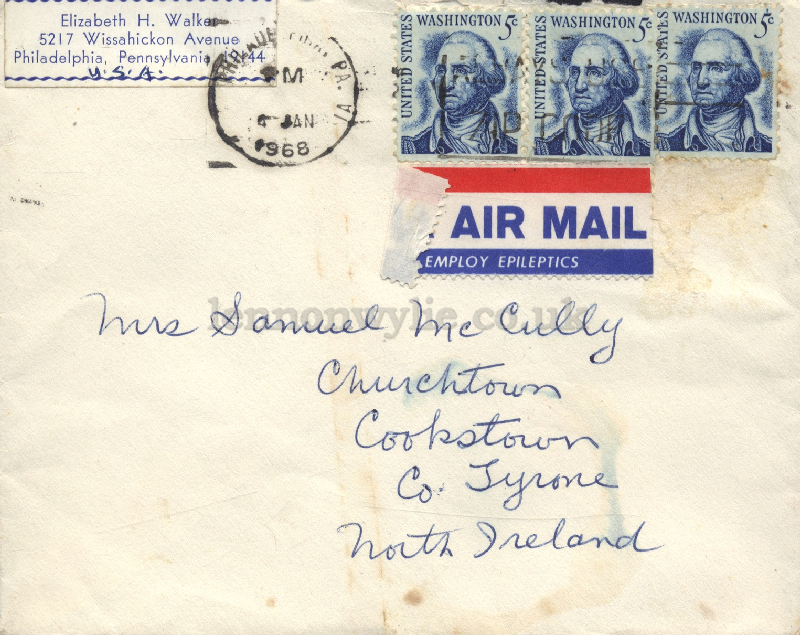 Elizabeth H. Walker
5217 Wissahickon Avenue
Philadelphia, Pennsylvania 44
U.S.A.
PA.
PM
4 JAN
1968
UNITED STATES WASHINGTON 5¢
UNITED STATES WASHINGTON 5¢
WASHINGTON 5¢
AIR MAIL
EMPLOY EPILEPTICS
lennonwylie.co.uk
Mrs Samuel McCully
Churchtown
Cookstown
Co. Tyrone
North Ireland